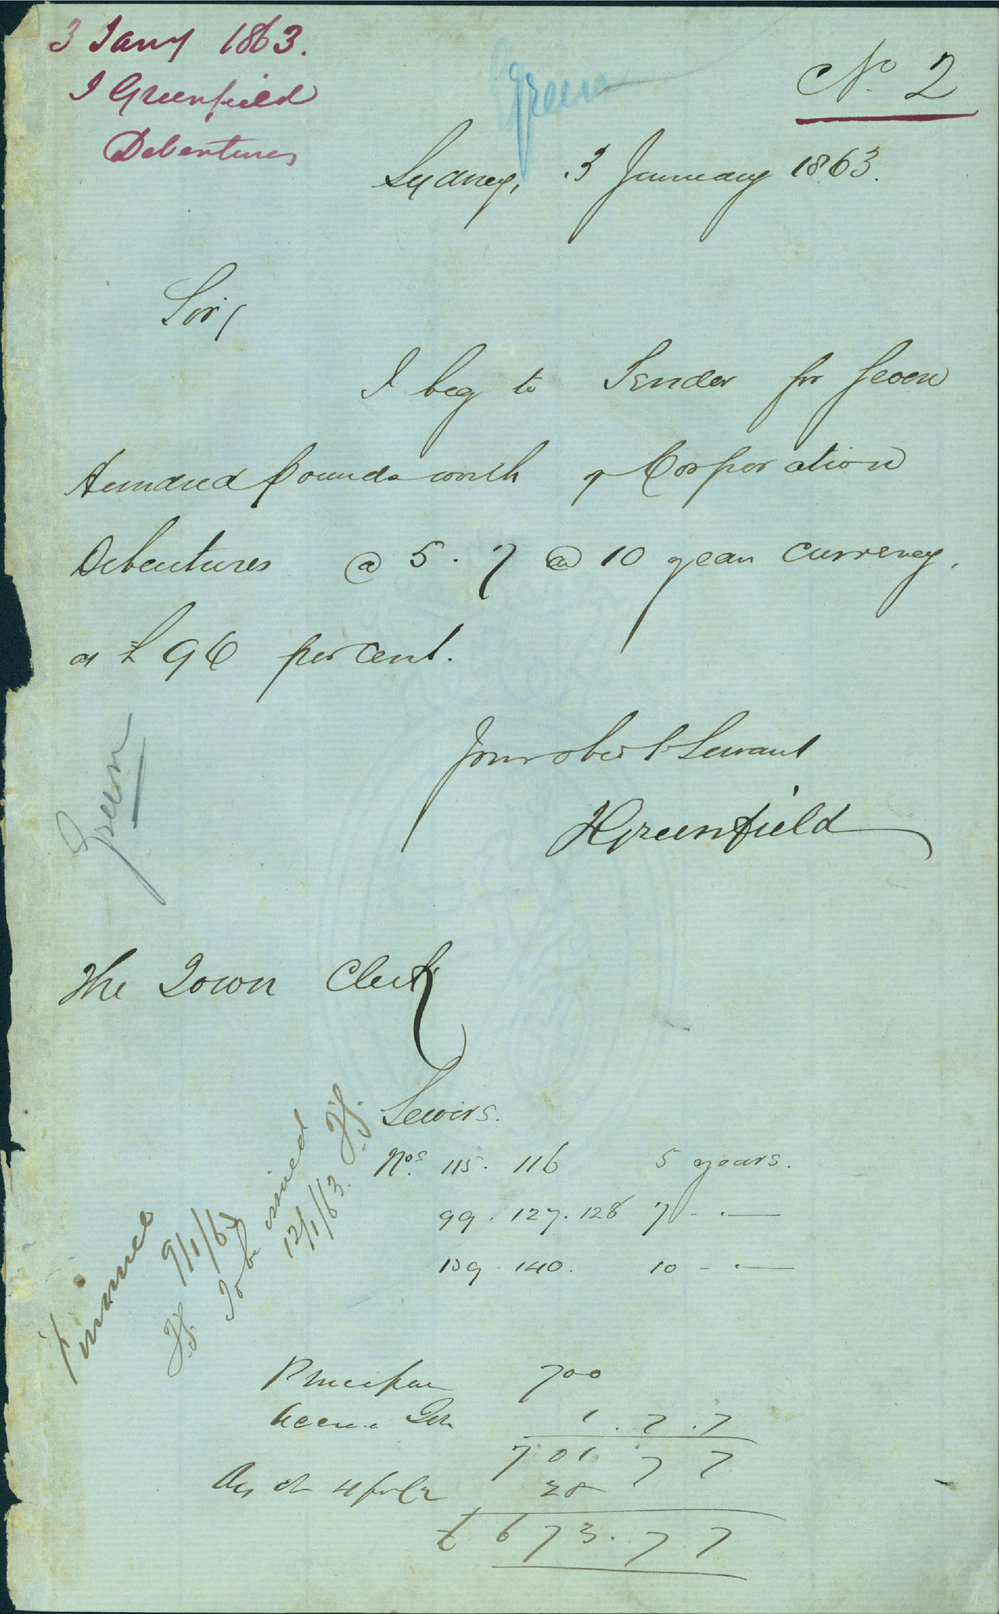 3 Jany 1863.
J Greenfield
Debentures
Green
No. 2
Sydney, 3 January 1863.
Sir,
I beg to Tender for Seven
Hundred Pounds worth of Corporation
Debentures @ 5. 7 @ 10 year currency,
at £96 per cent.
Your obedt Servant
J Greenfield
Green
The Town Clerk
Sewers.
Nos 115. 116 5 years.
99. 127. 128 7 - " —
139. 140. 10 - " —
Finance
9/1/63
JS.
To be issued
12/1/63. JS.
Principal 700
Accrued Int 1. 7. 7
701 7 7
Disct 4 pr Ct 28
£ 673. 7 7